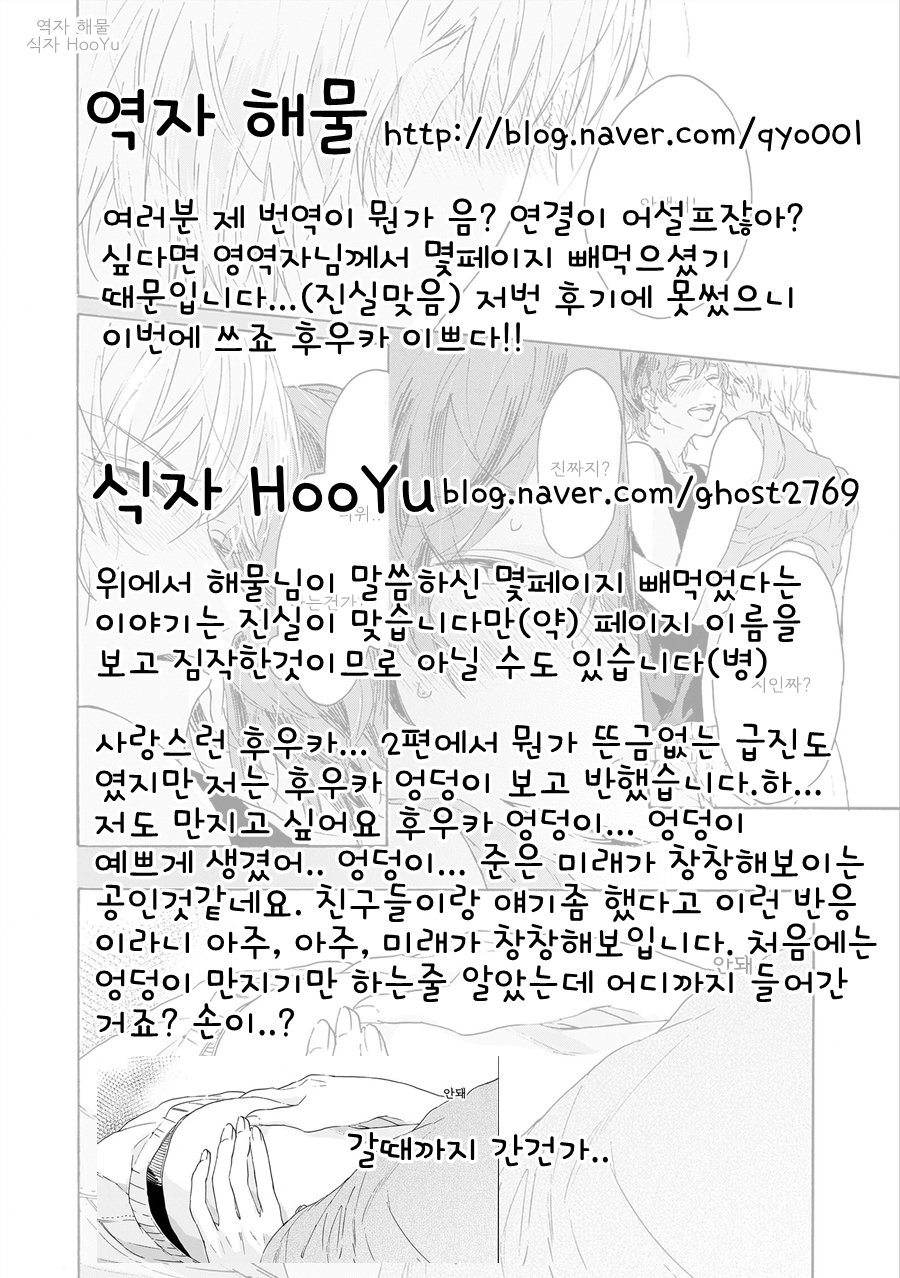 역자 해물
식자 HooYu
역자 해물 http://blog.naver.com/qyo001
여러분 제 번역이 뭔가 음? 연결이 어설프잖아?
싶다면 영역자님께서 몇페이지 빼먹으셨기
때문입니다...(진실맞음) 저번 후기에 못썼으니
이번에 쓰죠 후우카 이쁘다!!
진짜지?
식자 HooYu blog.naver.com/ghost2769
위에서 해물님이 말씀하신 몇페이지 빼먹었다는
이야기는 진실이 맞습니다만(약) 페이지 이름을
보고 짐작한것이므로 아닐 수도 있습니다(병)
시인짜?
사랑스런 후우카... 2편에서 뭔가 뜬금없는 급진도
였지만 저는 후우카 엉덩이 보고 반했습니다.하...
저도 만지고 싶어요 후우카 엉덩이... 엉덩이
예쁘게 생겼어.. 엉덩이... 준은 미래가 창창해보이는
공인것같네요. 친구들이랑 얘기좀 했다고 이런 반응
이라니 아주, 아주, 미래가 창창해보입니다. 처음에는
안돼
엉덩이 만지기만 하는줄 알았는데 어디까지 들어간
거죠? 손이..?
안돼
갈때까지 간건가..